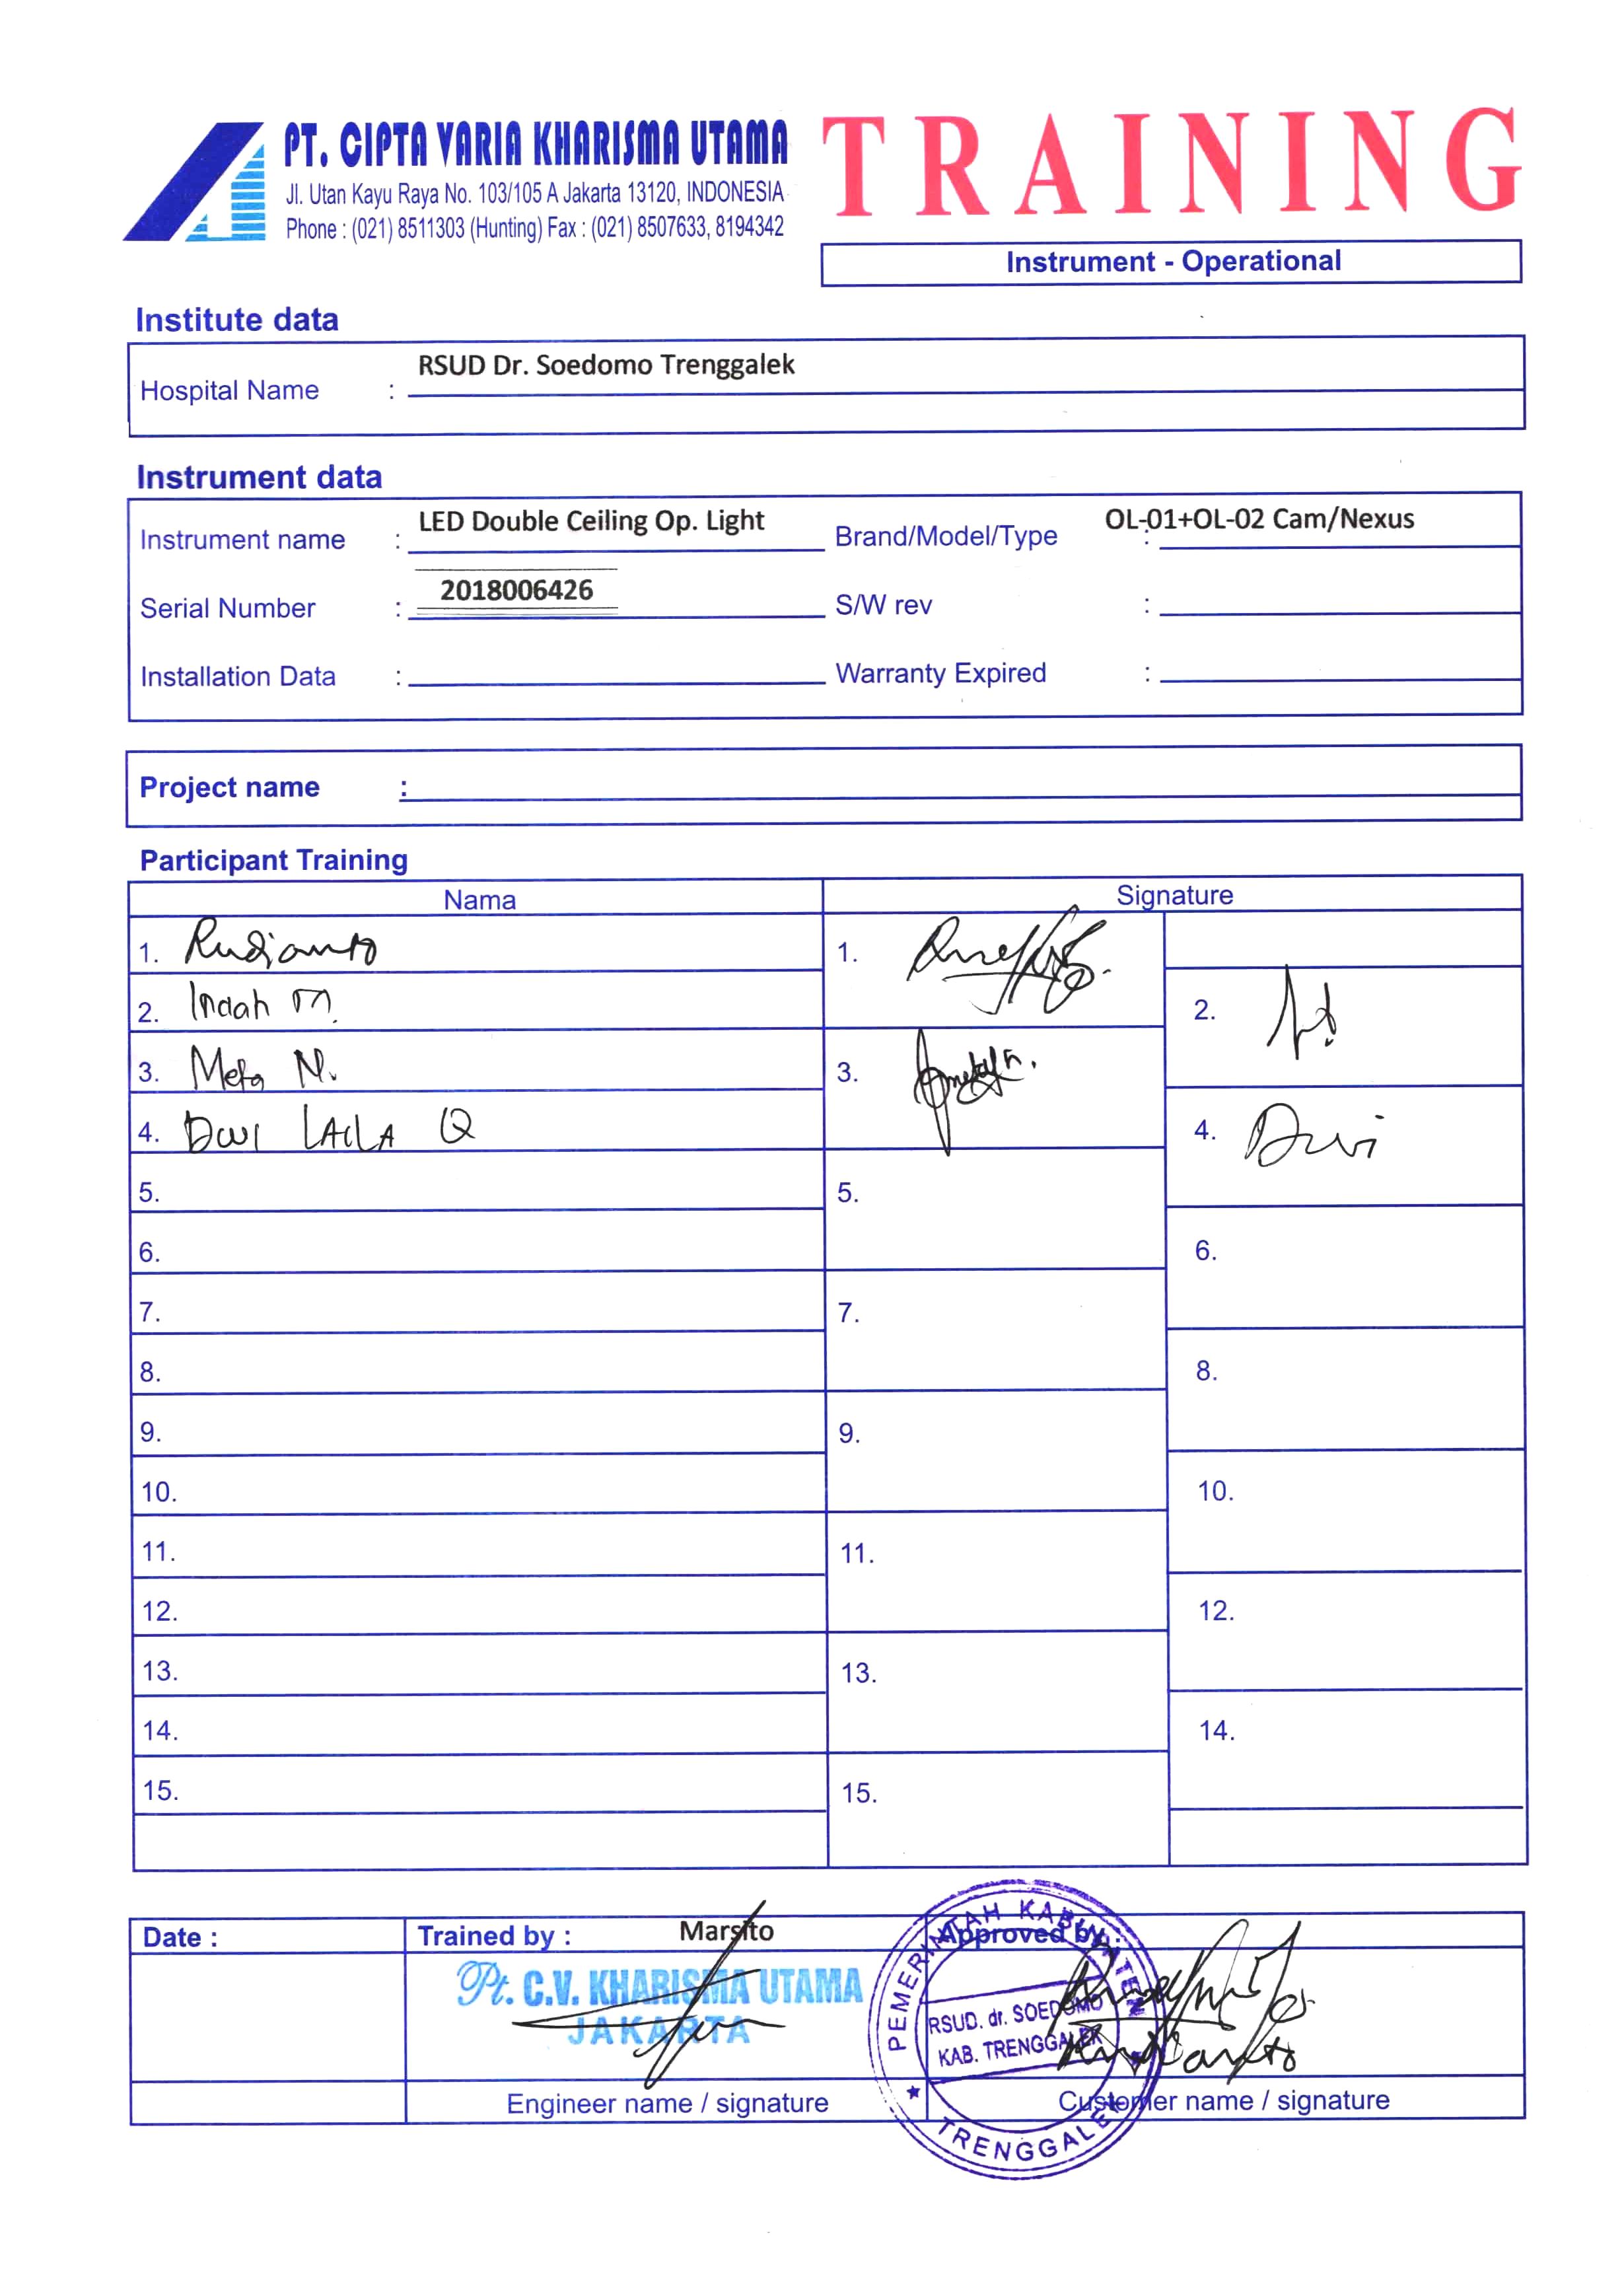 PT. CIPTA VARIA KHARISMA UTAMA
Jl. Utan Kayu Raya No. 103/105 A Jakarta 13120, INDONESIA
Phone : (021) 8511303 (Hunting) Fax : (021) 8507633, 8194342
TRAINING
Instrument - Operational
Institute data
Hospital Name : RSUD Dr. Soedomo Trenggalek
Instrument data
Instrument name : LED Double Ceiling Op. Light Brand/Model/Type : OL-01+OL-02 Cam/Nexus
Serial Number : 2018006426 S/W rev :
Installation Data : Warranty Expired :
Project name :
Participant Training
Nama Signature
1. Rudianto 1.
2. Indah M. 2.
3. Meta N. 3.
4. DWI LAILA Q 4. Dwi
5. 5.
6. 6.
7. 7.
8. 8.
9. 9.
10. 10.
11. 11.
12. 12.
13. 13.
14. 14.
15. 15.
Date : Trained by : Marsito Approved by :
Pt. C.V. KHARISMA UTAMA
JAKARTA
PEMERINTAH KABUPATEN
RSUD. dr. SOEDOMO
KAB. TRENGGALEK
TRENGGALEK
Engineer name / signature Customer name / signature